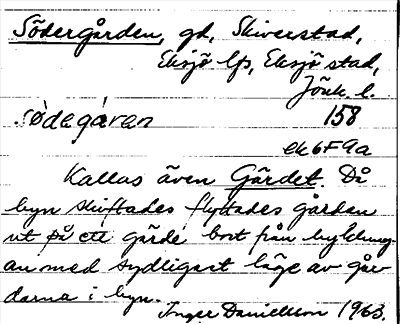 Södergården, gd, Skiverstad,
Eksjö lfs, Eksjö stad,
Jönk. l.
södegáren 158
ek6F9a
Kallas även Gärdet. Då
byn skiftades flyttades gården
ut på ett gärde bort från byklung-
an med sydligast läge av går-
darna i byn.
Inger Danielsson 1963.